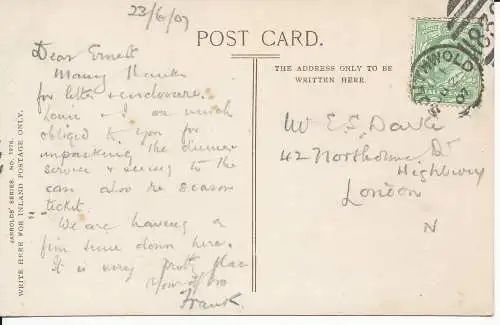 23/6/07
POST CARD.
THE ADDRESS ONLY TO BE
WRITTEN HERE.
JARROLDS' SERIES. NO. 1976.
WRITE HERE FOR INLAND POSTAGE ONLY.
Dear Ernest
Many thanks
for letter & enclosure.
& I are much
obliged to you for
unpacking the dinner
service & seeing to the
can also re season
ticket.
We are having a
fine time down here.
It is very pretty place
Your
Frank
Mr E.S. Darke
42 Northolme Rd
Highbury
London
N